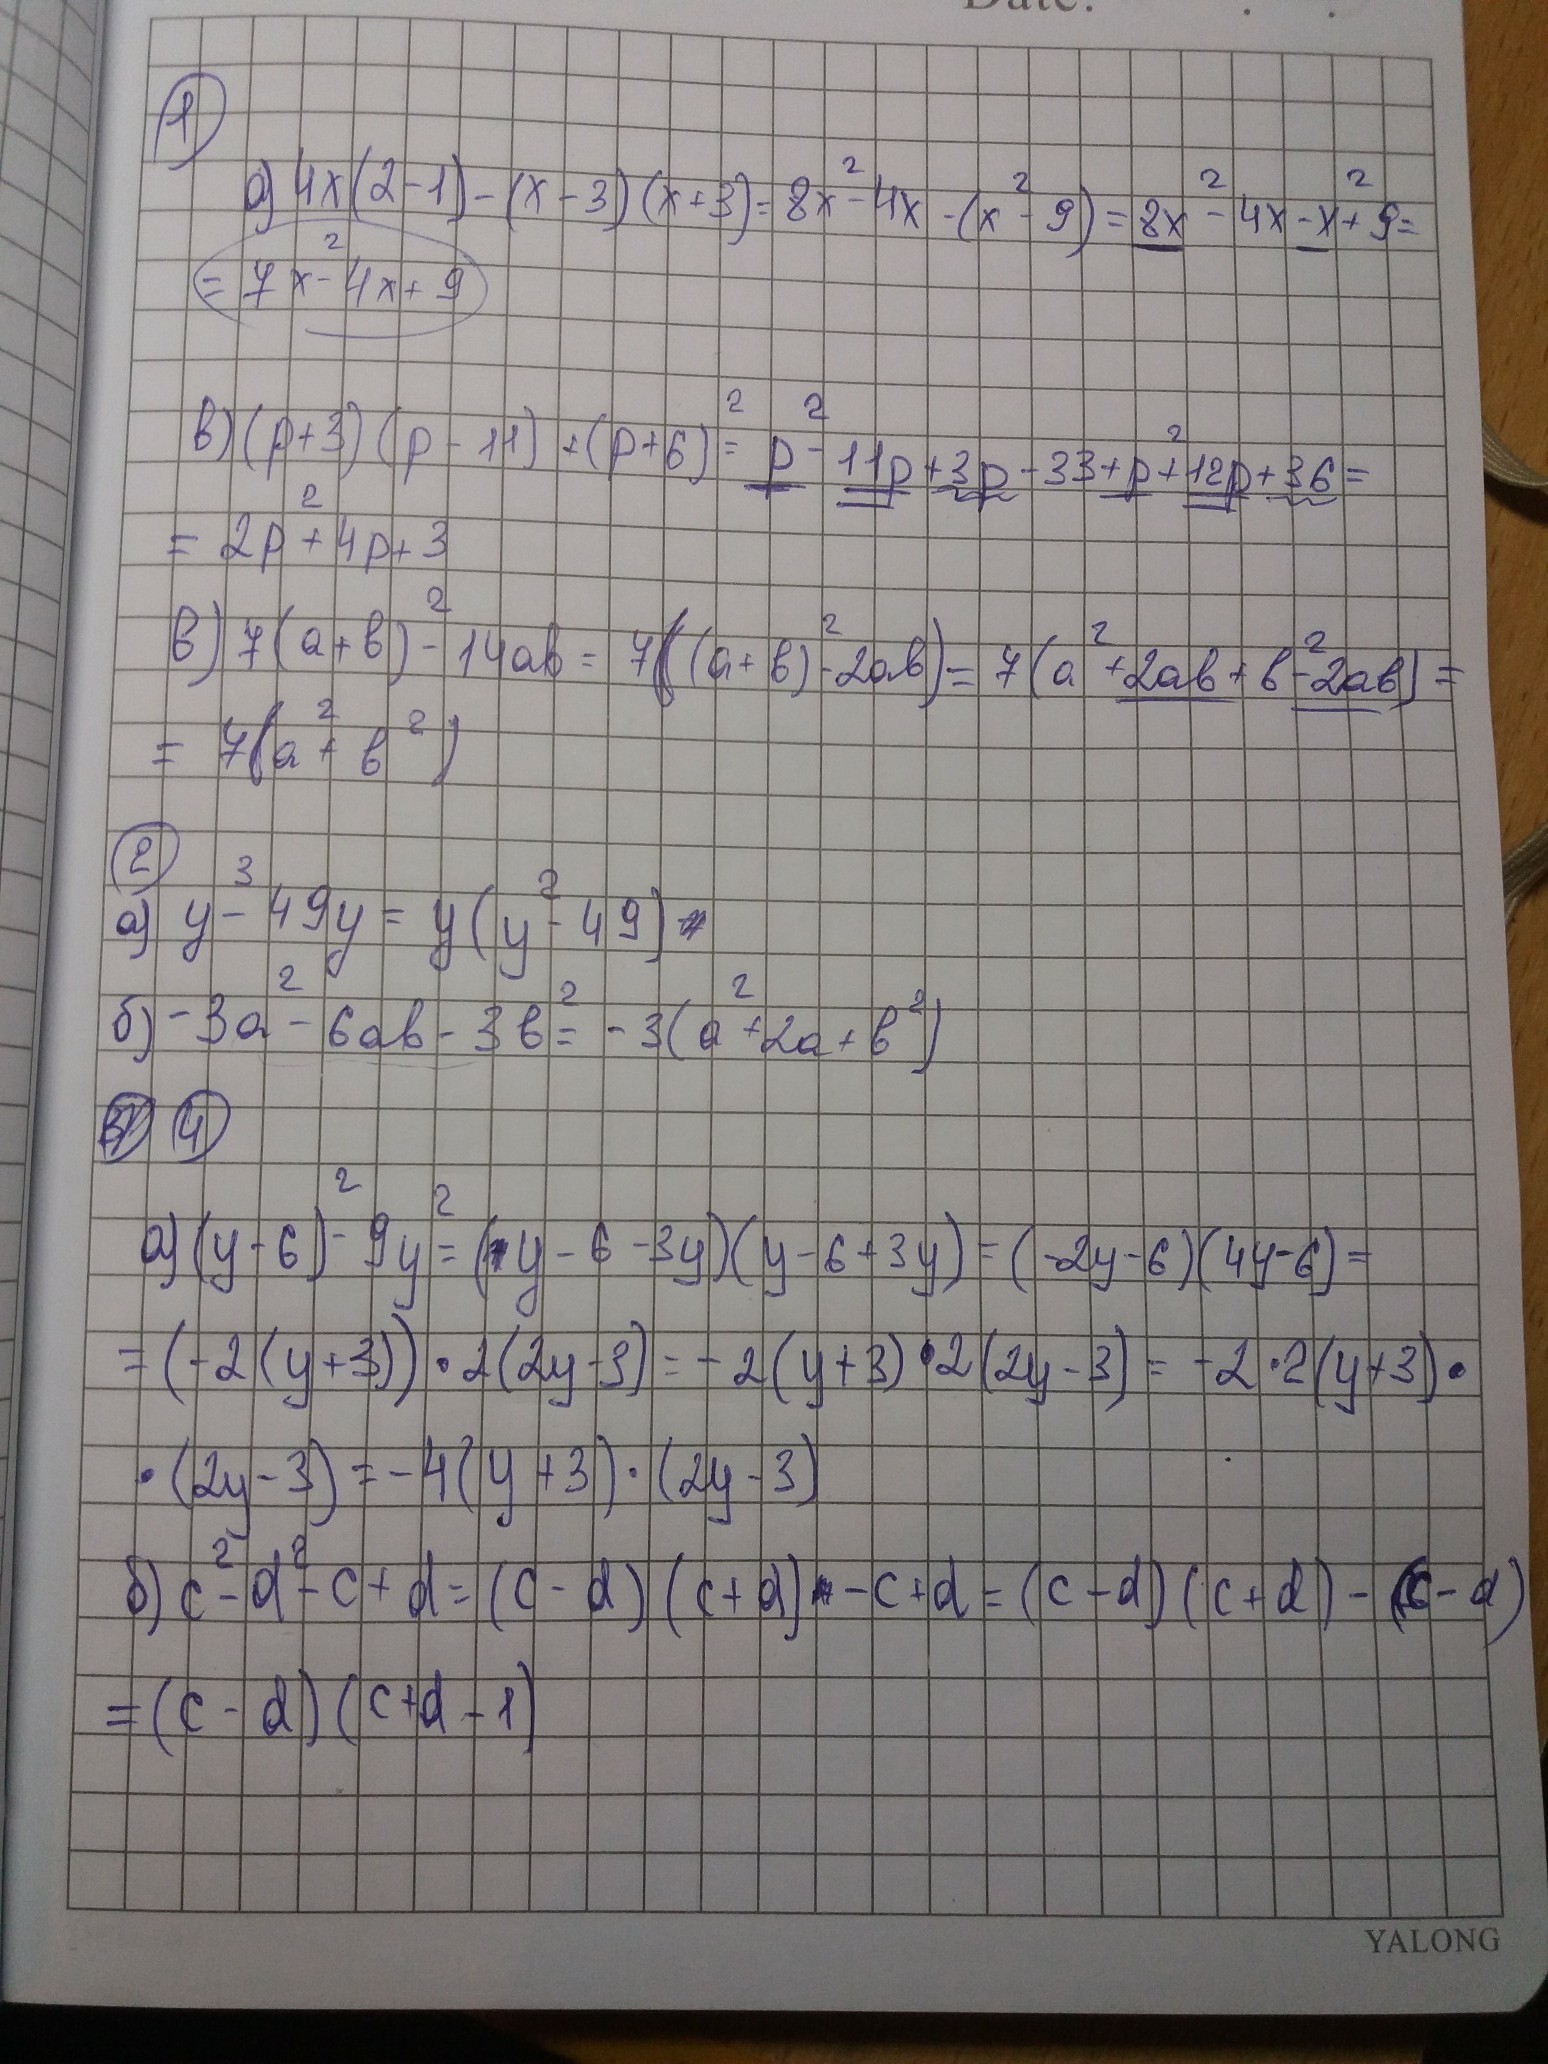 Date: . .
1
а) 4x(2-1)-(x-3)(x+3)=8x²-4x-(x²-9)=8x²-4x-x²+9=
=7x²-4x+9
в)(p+3)(p-11)+(p+6)²=p²-11p+3p-33+p²+12p+36=
=2p²+4p+3
в)7(a+b)²-14ab=7((a+b)²-2ab)=7(a²+2ab+b²-2ab)=
=7(a²+b²)
2
а) y³-49y=y(y²-49)
б)-3a²-6ab-3b²=-3(a²+2a+b²)
4
а)(y-6)²-9y²=(y-6-3y)(y-6+3y)=(-2y-6)(4y-6)=
=(-2(y+3))·2(2y-3)=-2(y+3)·2(2y-3)=-2·2(y+3)·
·(2y-3)=-4(y+3)·(2y-3)
б)c²-d²-c+d=(c-d)(c+d)-c+d=(c-d)(c+d)-(c-d)
=(c-d)(c+d-1)
YALONG